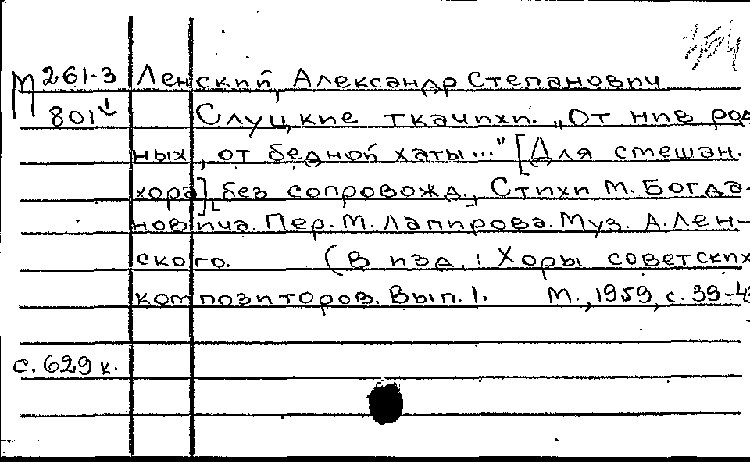 М 261-3 Ленский, Александр Степанович
801 Слуцкие ткачихи. „От нив род
ных, от бедной хаты..." [Для смешан.
хора], без сопровожд., Стихи М. Богда-
новича. Пер. М. Лапирова. Муз. А. Лен-
ского. (В изд.: Хоры советских
композиторов. Вып. 1. М., 1959, с. 39-4
с. 629 к.